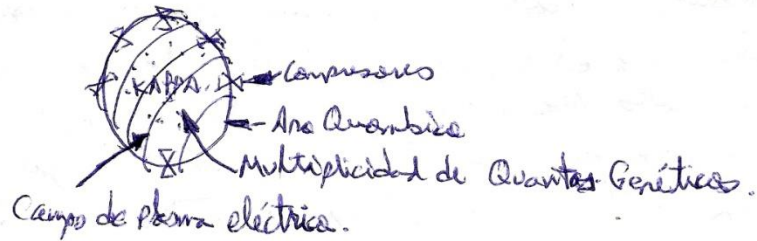 KAPPA
Compresores
Aro Quambica
Multiplicidad de Quantas Genéticas.
Campo de plasma eléctrica.